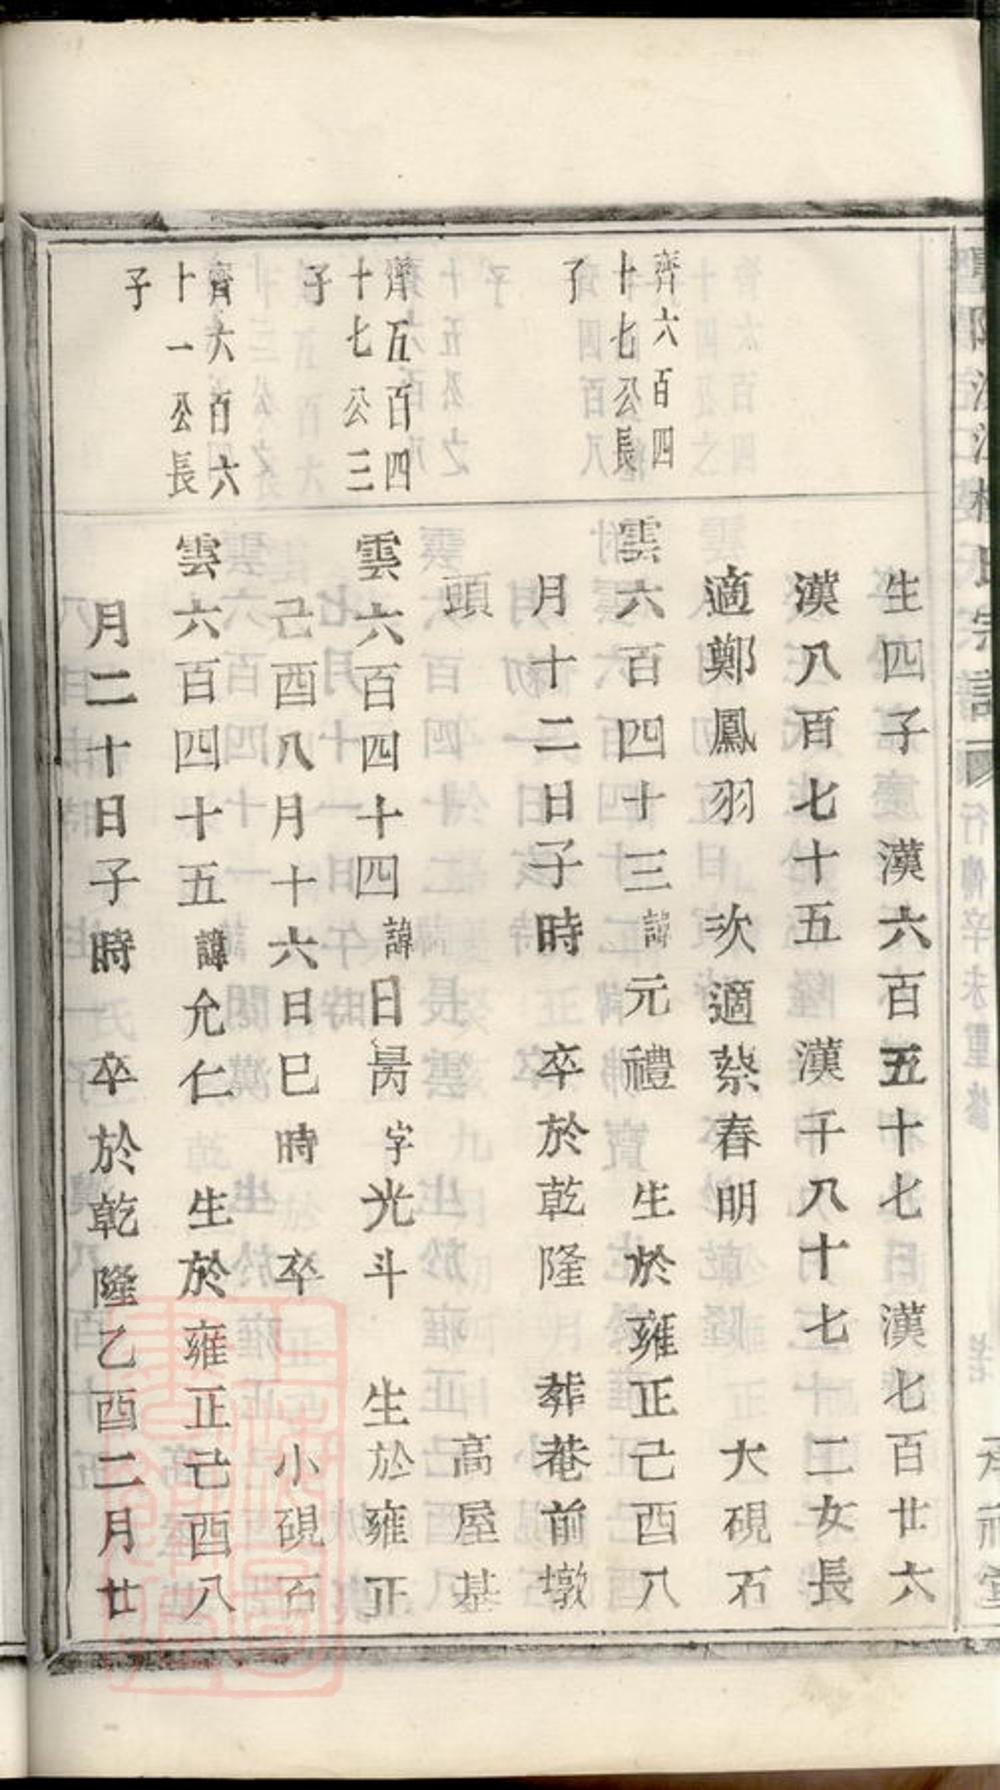 生四子 漢六百五十七 漢七百廿六
漢八百七十五 漢千八十七 二女長
適鄭鳳羽 次適蔡春明 大硯石
齊六百四
十七公長
子
雲六百四十三諱元禮 生於雍正己酉八
月十二日子時 卒於乾隆 葬菴前墩
頭 高屋基
濟五百四
十七公三
子
雲六百四十四諱日昺字光斗 生於雍正
己酉八月十六日巳時 卒 小硯石
齊六百六
十一公長
子
雲六百四十五諱允仁 生於雍正己酉八
月二十日子時 卒於乾隆乙酉二月廿